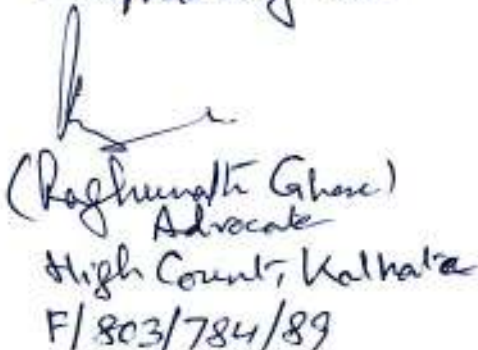 (Raghunath Ghose)
Advocate
High Court, Kalkata
F/803/784/89